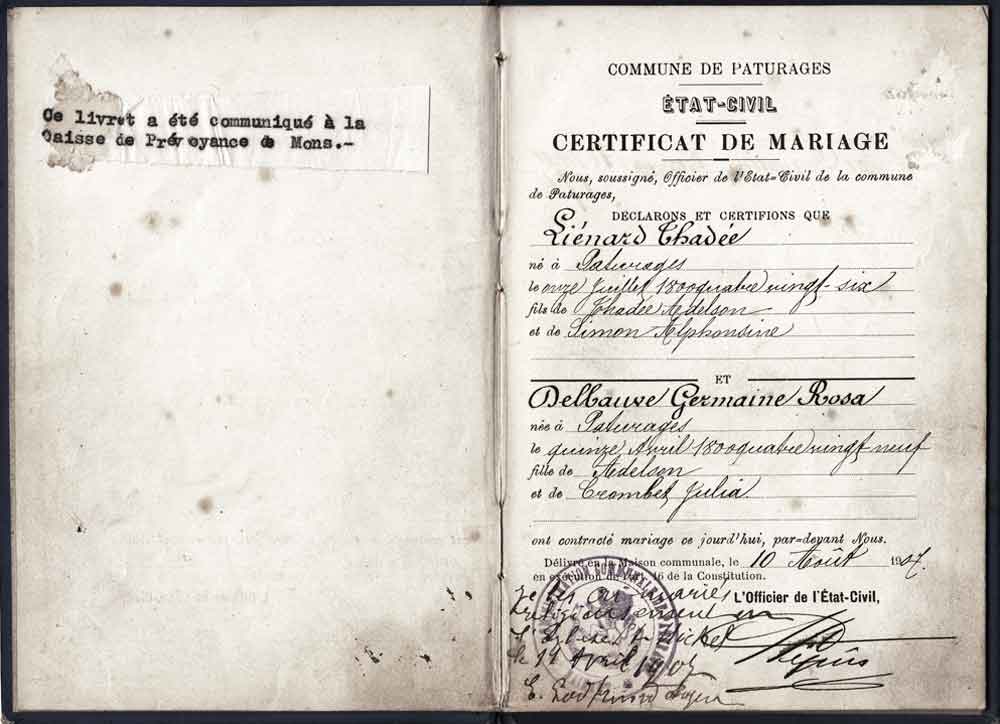 Ce livret a été communiqué à la
Caisse de Prévoyance de Mons.-
COMMUNE DE PATURAGES
ÉTAT-CIVIL
CERTIFICAT DE MARIAGE
Nous, soussigné, Officier de l'Etat=Civil de la commune
de Paturages,
DÉCLARONS ET CERTIFIONS QUE
Liénard Thadée
né à Paturages
le onze Juillet 1800 quatre vingt-six
fils de Thadée Adelson
et de Simon Alphonsine
ET
Delbauve Germaine Rosa
née à Paturages
le quinze Avril 1800 quatre vingt neuf
fille de Adelson
et de Crombet Julia
ont contracté mariage ce jourd'hui, par=devant Nous.
Délivré en la Maison communale, le 10 Août 1907.
en exécution de l'art. 16 de la Constitution.
L'Officier de l'État-Civil,
Je les ai mariés
religieusement en
l'église St Michel
le 11 Avril 1907
E.